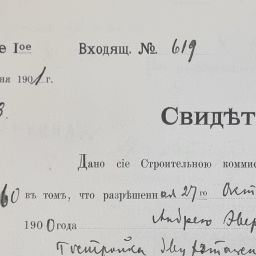 е Iое Входящ. № 619
ня 1901 г.
3.
Свидѣт
Дано сіе Строительною комми
60 въ томъ, что разрѣшенная 27го Окт
1900 года Андрею Звер
Постройка двухэтажн